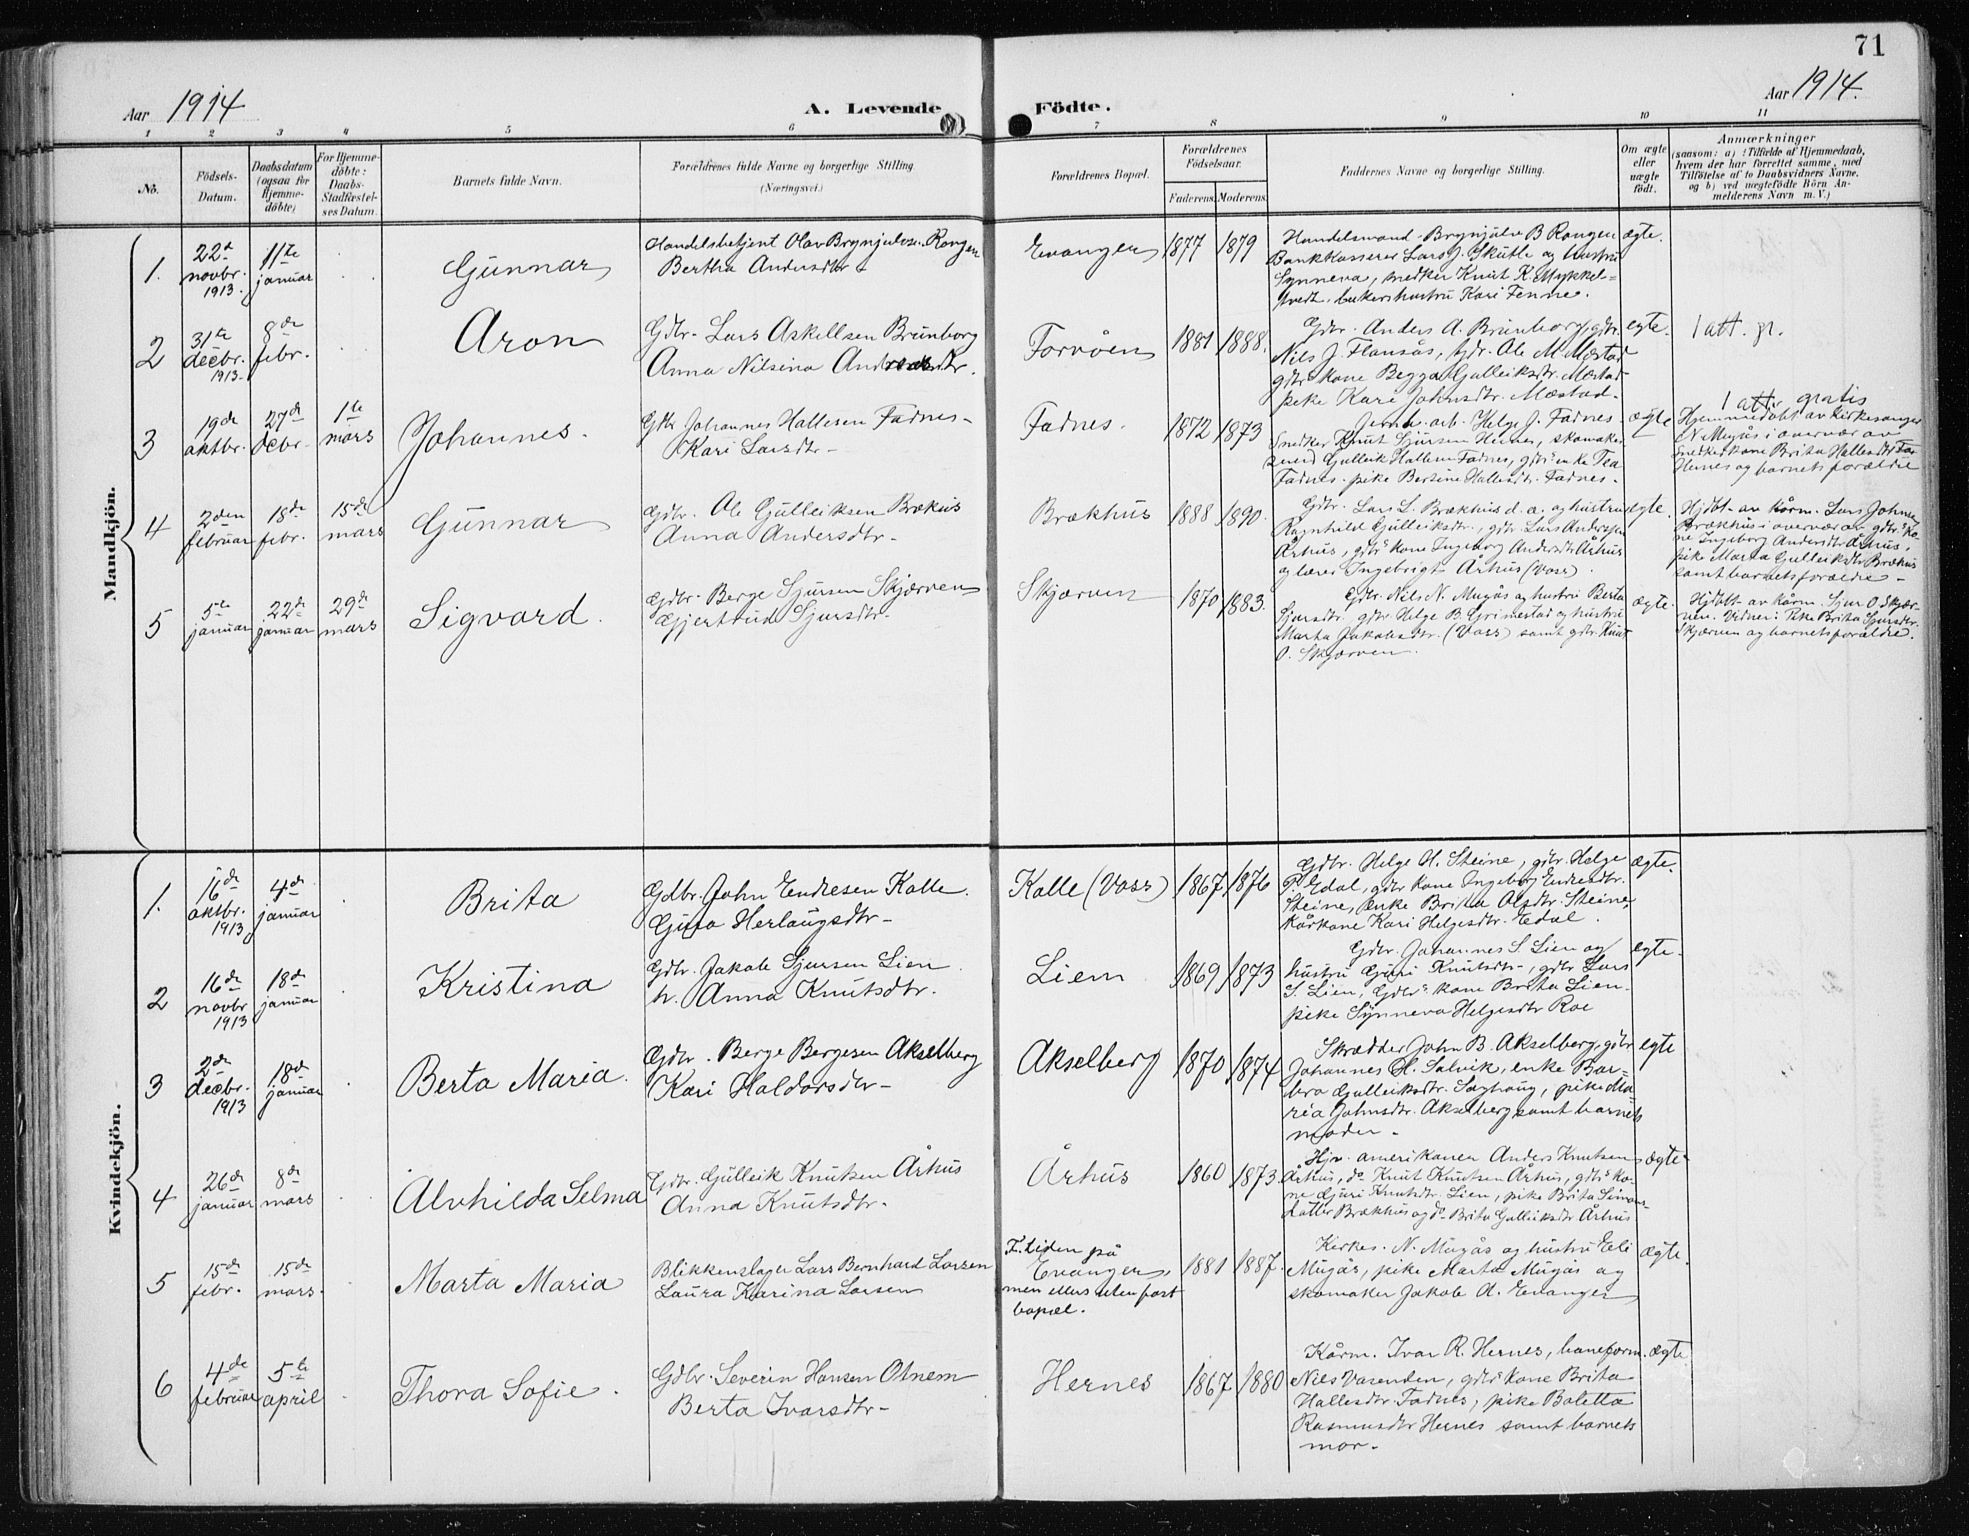 71
Aar 1914
A. Levende Födte.
Aar 1914.
1 2 3 4 5 6 7 8 9 10 11
No.
Födsels-
Datum.
Daabsdatum
(ogsaa for
Hjemme-
döbte)
For Hjemme-
döbte:
Daabs-
Stadfæstel-
ses Datum.
Barnets fulde Navn.
Forældrenes fulde Navne og borgerlige Stilling.
(Næringsvei.)
Forældrenes Bopæl.
Forældrenes
Födselsaar.
Faderens. Moderens.
Faddernes Navne og borgerlige Stilling.
Om ægte
eller
uægte
födt.
Anmærkninger
(saasom: a) i Tilfælde af Hjemmedaab,
hvem der har forrettet samme, med
Tilföielse af to Daabsvidners Navne,
og b) ved uægtefödte Börn An-
melderens Navn m. V.)
Mandkjön.
1.
22d
novbr.
1913.
11te
januar
Gunnar
Handelsbetjent Olav Brynjulvsen Rongen
Bertha Andersdtr
Evanger
1877 1879
Handelsmand Brynjulv B Rongen
Bankkasserer Lars J. Skutle og hustru
Synneva, snedker Knut K. Mykkel-
tvedt, bakershustru Kari Fenne.
ægte.
2
31te
decbr.
1913.
8de
febr.
Aron
Gdbr. Lars Askellsen Brunborg
Anna Nilsina
Forvöen
1881 1888.
Gdbr. Anders A. Brunborg, gdbr.
Nils J. Flansås, gdr. Ole M. Mæstad
gdbr kone Begga Gulleiksdtr. Mæstad
pike Kari Johnsdtr. Mæstad.
egte.
1 att. gr.
3
19de
oktbr.
27de
debr.
1te
mars
Johannes.
Gbr Johannes Hallesen Fadnes
Kari Larsdtr
Fadnes.
1872 1873
Jernb. arb. Helge J. Fadnes
Snedker Knut Sjursen Hernes, skomaker
svend Gulleik Hallesen Fadnes, gdbrs enke Tea
Fadnes, pike Bertine Hallesdtr. Fadnes.
ægte
1 att. gratis
Hjemmedöbt av kirkesanger
N. Mugås i overvær av
snedkerkone Brita Hallesdtr
Hernes og barnets forældre
4
2den
februar
18de
febr.
15de
mars
Gunnar
Gdbr. Ole Gulleiksen Brækus
Anna Andersdtr
Brækhus
1888 1890.
Gdbr. Lars L. Brækhus d. a. og hustru
Ragnhild Gulleiksdtr., gdbr Lars Andersen
Århus, gdbrs kone Ingeborg Andersdtr Århus
og lærer Ingebrigt Århus (Voss).
egte.
Hjdöbt av kårm. Lars Johns
Brækhus i overvær av gdbrs ko-
ne Ingeborg Andersdtr Århus,
pike Marta Gulleiksdtr Brækhus
samt barnets forældre
5
5te
januar
22de
januar
29de
mars
Sigvard.
Gdbr. Berge Sjursen Skjærven
Gjertrud Sjursdtr.
Skjærven
1870 1883.
Gdbr. Nils N. Mugås og hustru Berta
Sjursdtr. gdbr. Helge B. Grimestad og hustru
Marta Jakobsdtr. (Voss) samt gdbr. Knut
O. Skjærven.
ægte.
Hjdöbt av kårm. Sjur O. Skjær-
ven. Vidner: Pike Brita Sjursdtr.
Skjærven og barnets forældre.
Kvindekjön.
1.
16de
oktbr.
1913
4de
januar
Brita
Gdbr. John Endresen Kalle.
Guro Herlaugsdtr
Kalle (Voss)
1867 1876
Gdbr. Helge H. Steine, gdbr. Helge
P. Edal, gdbr kone Ingeborg Endresdtr.
Steine, enke Brita Olsdtr. Steine
kårkone Kari Helgesdtr. Edal.
ægte.
2
16de
novbr
1913
18de
januar
Kristina
Gdbr. Jakob Sjursen Lien
h. Anna Knutsdtr.
Liem
1869 1873
Gdbr. Johannes S. Lien og
hustru Guri Knutsdtr, gdbr Lars
S. Lien, Gdbrs kone Brita Lien.
pike Synneva Helgesdtr Roe
egte.
3
2de
decbr.
1913
18de
januar
Berta Maria.
Gdbr. Berge Bergesen Akselberg
Kari Haldorsdtr
Akselberg
1870 1874
Skrædder John B. Akselberg, gdbr
Johannes H. Salvik, enke Bar-
bro Gulleiksdtr. Saghaug, pike Ma-
ria Johnsdtr. Akselberg samt barnets
moder
egte
4
26de
januar
8de
mars
Alvhilda Selma
Gdbr. Gulleik Knutsen Århus
Anna Knutsdtr.
Århus
1860 1873.
Hjv. amerikaner Anders Knutsen
Århus, do Knut Knutsen Århus, gdbrs ko-
ne Guri Knutsdtr. Lien, pike Brita Simons-
datter Brækhus og do Brita Gulleiksdtr Århus
ægte
5
15de
febr.
15de
mars.
Marta Maria
Blikkenslager Lars Bernhard Larsen
Laura Karina Larsen
F. tiden på
Evanger,
men ellers uten fast
bopæl.
1881 1887.
Kirkes. N. Mugås og hustru Eli
Mugås, pike Marta Mugås og
skomaker Jakob A. Evanger
ægte.
6
4de
februar
5te
april
Thora Sofie.
Gdbr. Severin Hansen Otnem
Berta Ivarsdtr
Hernes
1867 1880
Kårm. Ivar R. Hernes, baneform.
Nils Vasenden, gdbrs kone Brita
Hallesdtr Fadnes, pike Boletta
Rasmusdtr Hernes samt barnets
mor.
ægte